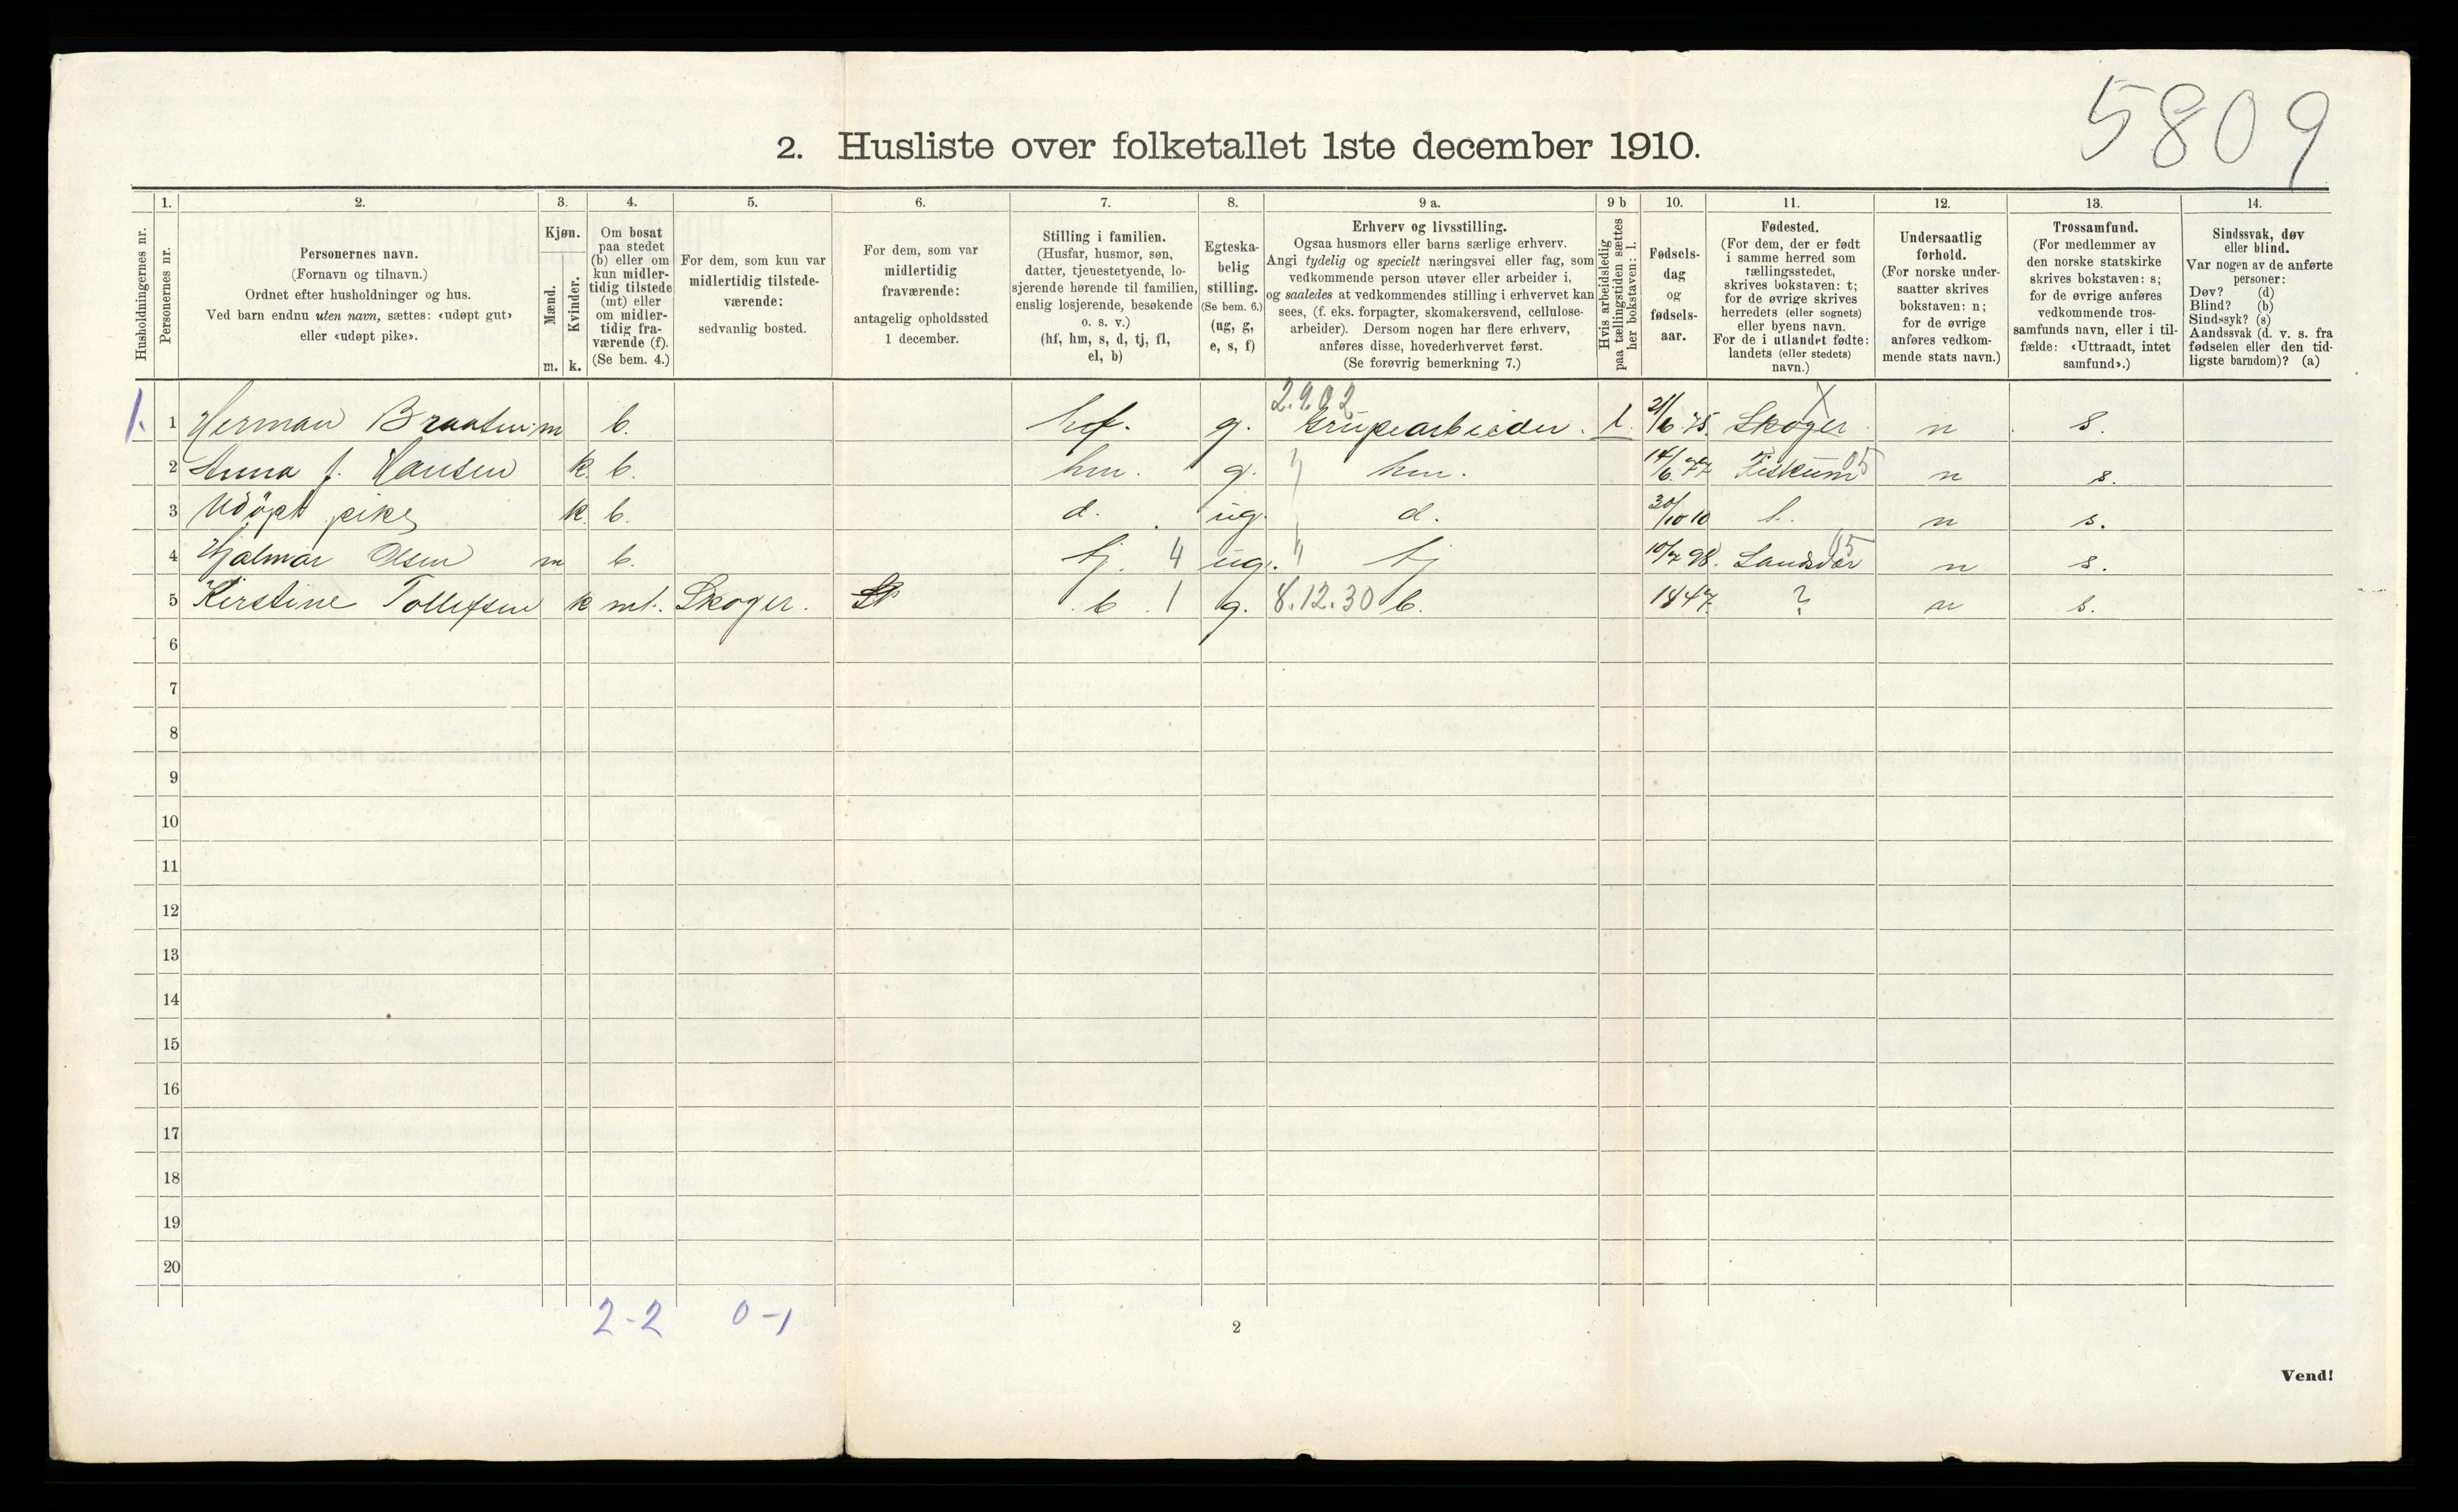 5809
2. Husliste over folketallet 1ste december 1910.
Husholdningernes nr.
1. Personernes nr.
2. Personernes navn.
(Fornavn og tilnavn.)
Ordnet efter husholdninger og hus.
Ved barn endnu uten navn, sættes: «udøpt gut»
eller «udøpt pike».
3. Kjøn.
Mænd. m.
Kvinder. k.
4. Om bosat
paa stedet
(b) eller om
kun midler-
tidig tilstede
(mt) eller
om midler-
tidig fra-
værende (f).
(Se bem. 4.)
5. For dem, som kun var
midlertidig tilstede-
værende:
sedvanlig bosted.
6. For dem, som var
midlertidig
fraværende:
antagelig opholdssted
1 december.
7. Stilling i familien.
(Husfar, husmor, søn,
datter, tjenestetyende, lo-
sjerende hørende til familien,
enslig losjerende, besøkende
o. s. v.)
(hf, hm, s, d, tj, fl,
el, b)
8. Egteska-
belig
stilling.
(Se bem. 6.)
(ug, g,
e, s, f)
9 a. Erhverv og livsstilling.
Ogsaa husmors eller barns særlige erhverv.
Angi tydelig og specielt næringsvei eller fag, som
vedkommende person utøver eller arbeider i,
og saaledes at vedkommendes stilling i erhvervet kan
sees, (f. eks. forpagter, skomakersvend, cellulose-
arbeider). Dersom nogen har flere erhverv,
anføres disse, hovederhvervet først.
(Se forøvrig bemerkning 7.)
9 b Hvis arbeidsledig
paa tællingstiden sættes
her bokstaven: l.
10. Fødsels-
dag
og
fødsels-
aar.
11. Fødested.
(For dem, der er født
i samme herred som
tællingsstedet,
skrives bokstaven: t;
for de øvrige skrives
herredets (eller sognets)
eller byens navn.
For de i utlandet fødte:
landets (eller stedets)
navn.)
12. Undersaatlig
forhold.
(For norske under-
saatter skrives
bokstaven: n;
for de øvrige
anføres vedkom-
mende stats navn.)
13. Trossamfund.
(For medlemmer av
den norske statskirke
skrives bokstaven: s;
for de øvrige anføres
vedkommende tros-
samfunds navn, eller i til-
fælde: «Uttraadt, intet
samfund».)
14. Sindssvak, døv
eller blind.
Var nogen av de anførte
personer:
Døv? (d)
Blind? (b)
Sindssyk? (s)
Aandssvak (d. v. s. fra
fødselen eller den tid-
ligste barndom)? (a)
2.9.02 X
1. 1 Herman Braaten m b. hf. g. Grupearbeider. l. 21/6 75. Skoger n s.
2 Anna J. Hansen k. b. hm. g. " hm. 14/6 77 Fiskum 05 n s.
3 Udöpt pike k. b. d. ug. d. 30/10 10 t. n s.
4 Hjalmar Olsen m b. tj. 4 ug. " tj 10/7 98. Sandsvær 05 n s.
5 Kirstine Tollefsen k mt. Skoger. b 1 g. 8.12.30 b. 1847. ? n s.
6
7
8
9
10
11
12
13
14
15
16
17
18
19
20
2-2 0-1
2
Vend!